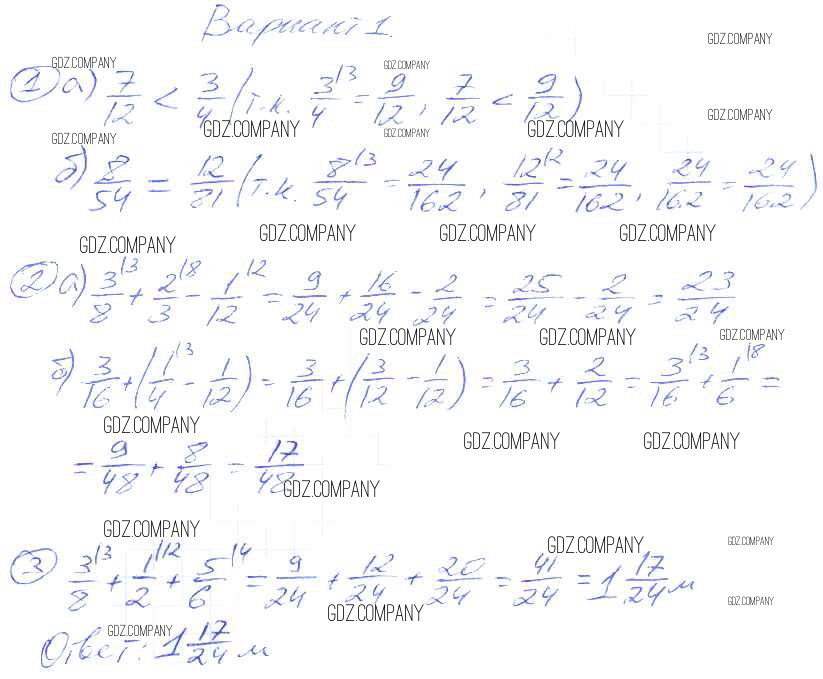 Вариант 1.
GDZ.COMPANY GDZ.COMPANY GDZ.COMPANY
1 а) 7/12 < 3/4 (т.к. 3/4 |3 = 9/12, 7/12 < 9/12)
GDZ.COMPANY GDZ.COMPANY GDZ.COMPANY
GDZ.COMPANY GDZ.COMPANY
б) 8/54 = 12/81 (т.к. 8/54 |3 = 24/162, 12/81 |2 = 24/162, 24/162 = 24/162)
GDZ.COMPANY GDZ.COMPANY GDZ.COMPANY GDZ.COMPANY
2 а) 3/8 |3 + 2/3 |8 - 1/12 |2 = 9/24 + 16/24 - 2/24 = 25/24 - 2/24 = 23/24
GDZ.COMPANY GDZ.COMPANY GDZ.COMPANY
б) 3/16 + (1/4 |3 - 1/12) = 3/16 + (3/12 - 1/12) = 3/16 + 2/12 = 3/16 |3 + 1/6 |8 =
GDZ.COMPANY GDZ.COMPANY GDZ.COMPANY
= 9/48 + 8/48 = 17/48
GDZ.COMPANY
GDZ.COMPANY GDZ.COMPANY GDZ.COMPANY
3 3/8 |3 + 1/2 |12 + 5/6 |4 = 9/24 + 12/24 + 20/24 = 41/24 = 1 17/24 м
GDZ.COMPANY GDZ.COMPANY
GDZ.COMPANY
Ответ: 1 17/24 м